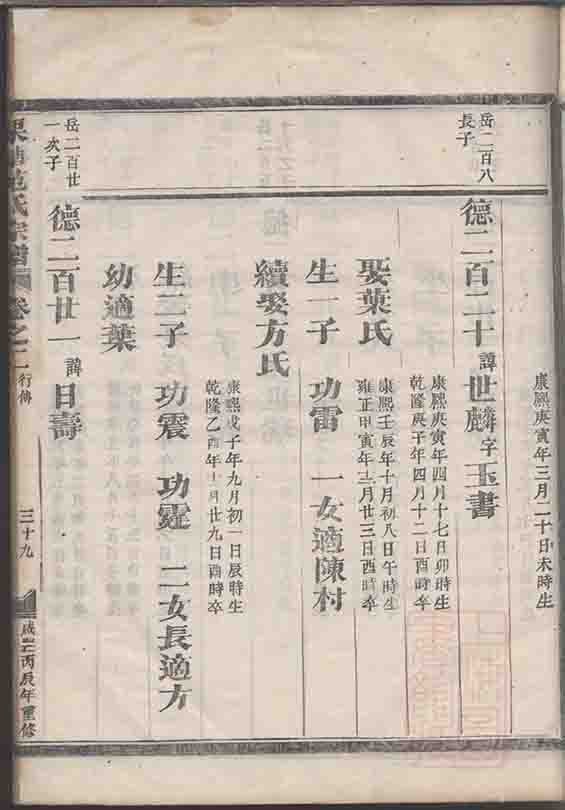 康熙庚寅年三月二十日未時生
岳二百八
長子
德二百二十 諱 世麟 字 玉書
康熙庚寅年四月十七日卯時生
乾隆庚子年四月十二日酉時卒
娶葉氏
康熙壬辰年十月初八日午時生
雍正甲寅年十二月廿三日酉時卒
生一子 功雷 一女適陳村
續娶方氏
康熙戊子年九月初一日辰時生
乾隆乙酉年十一月廿九日酉時卒
生二子 功震 功霆 二女長適方
幼適葉
岳二百廿
一次子
德二百廿一 諱 日壽
范氏宗譜 卷之二 行傳 三十九 咸豐丙辰年重修